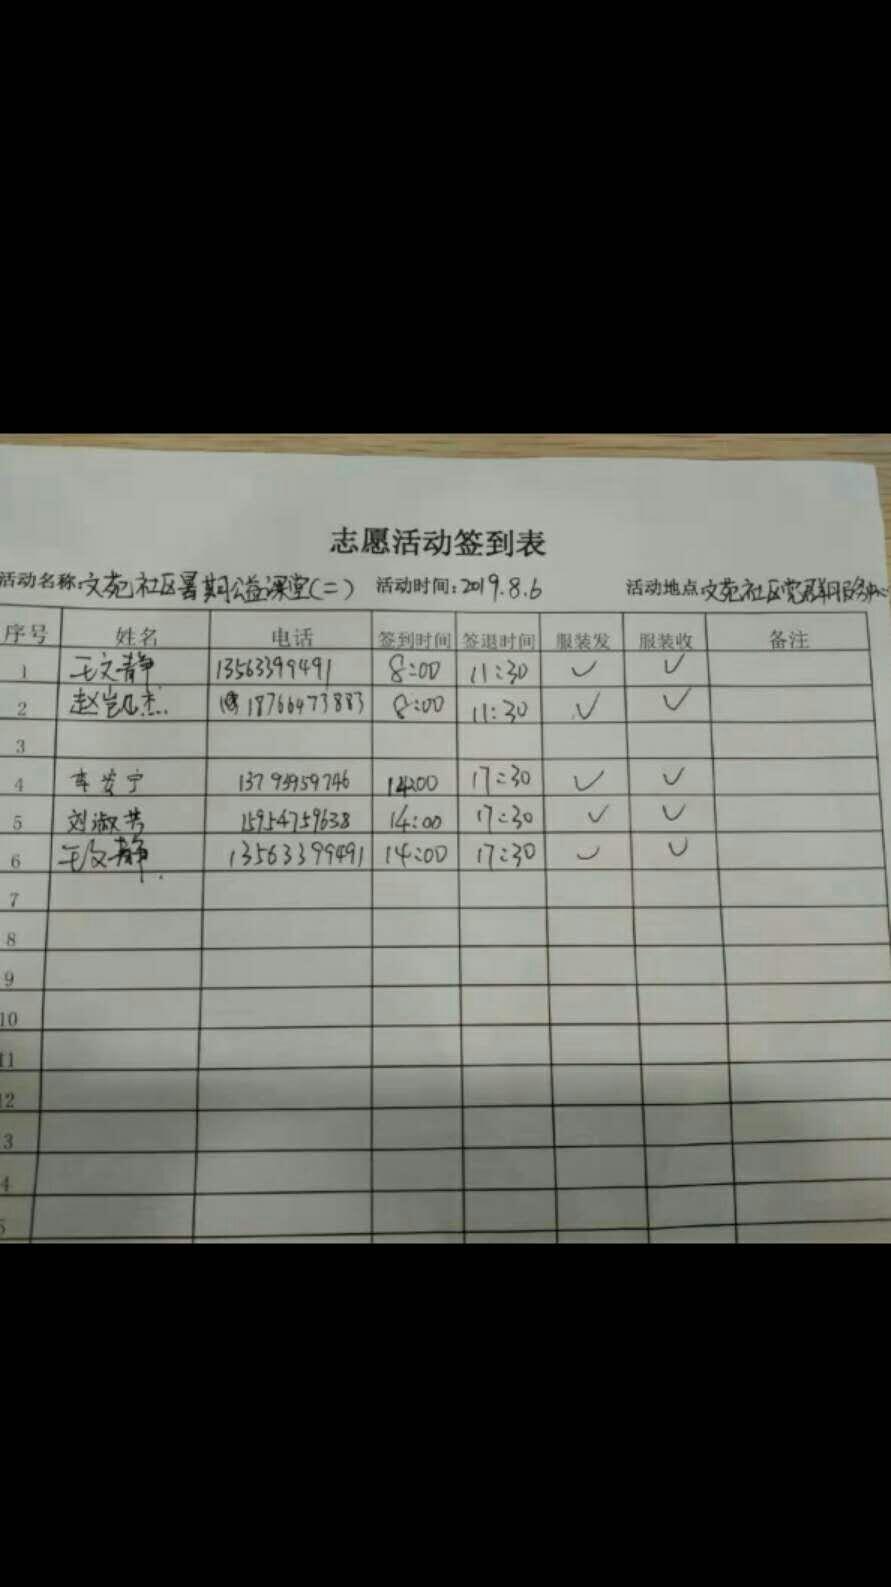 志愿活动签到表
活动名称:文苑社区暑期公益课堂(二) 活动时间:2019.8.6 活动地点:文苑社区党群服务中心
序号 姓名 电话 签到时间 签退时间 服装发 服装收 备注
1 王文静 13563399491 8:00 11:30 ✓ ✓
2 赵岂凡杰 18766473883 8:00 11:30 ✓ ✓
3
4 车安宁 13793959746 14:00 17:30 ✓ ✓
5 刘淑芳 15954759638 14:00 17:30 ✓ ✓
6 王文静 13563399491 14:00 17:30 ✓ ✓
7
8
9
10
11
12
3
4
5